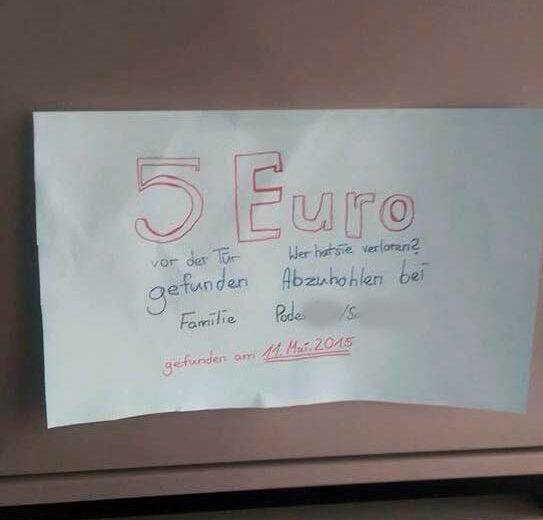 5 Euro
vor der Tür Wer hat sie verloren?
gefunden Abzuhohlen bei
Familie
gefunden am 11. Mai. 2015